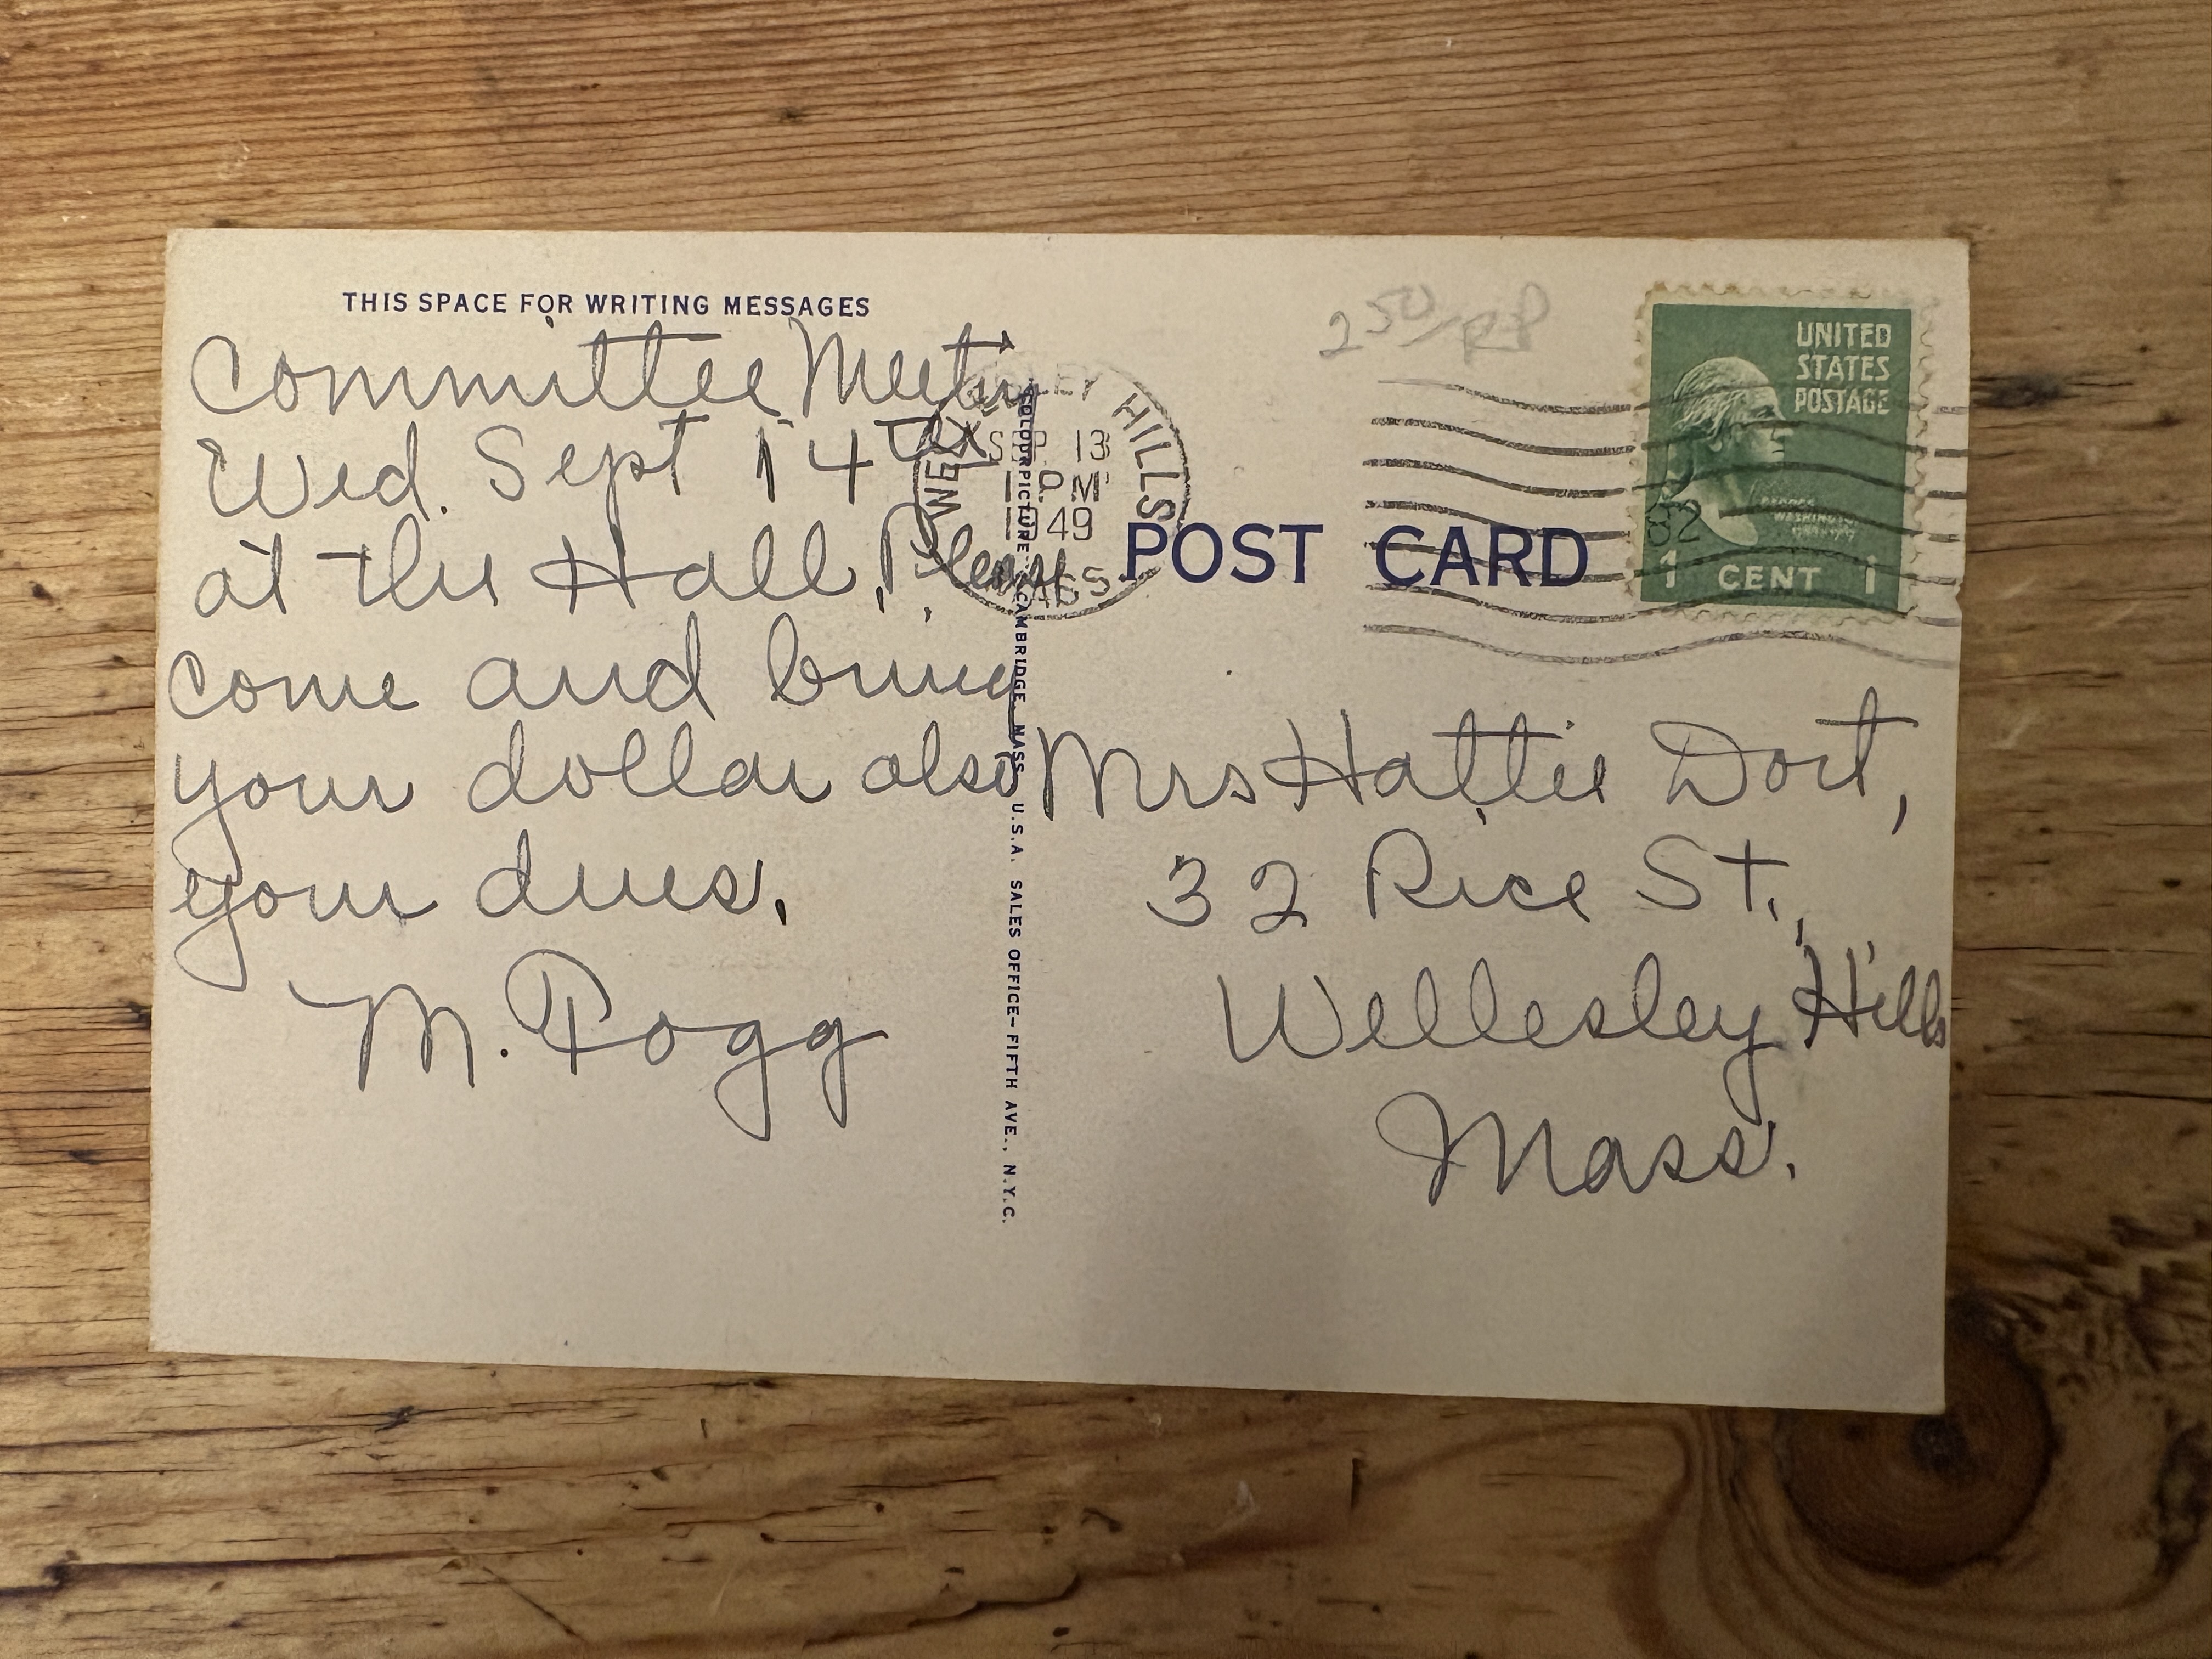 THIS SPACE FOR WRITING MESSAGES
Committee Meeting
Wed. Sept 14th
at the Hall, Please
come and bring
your dollar also
your dues.
M. Pogg
COLOURPICTURE CAMBRIDGE, MASS. U.S.A. SALES OFFICE-FIFTH AVE., N.Y.C.
WELLESLEY HILLS
SEP 13
1 PM
1949
MASS.
2 50/RP
POST CARD
UNITED
STATES
POSTAGE
82
GEORGE
WASHINGTON
1 CENT 1
Mrs Hattie Dort,
32 Rice St.,
Wellesley Hills
Mass.